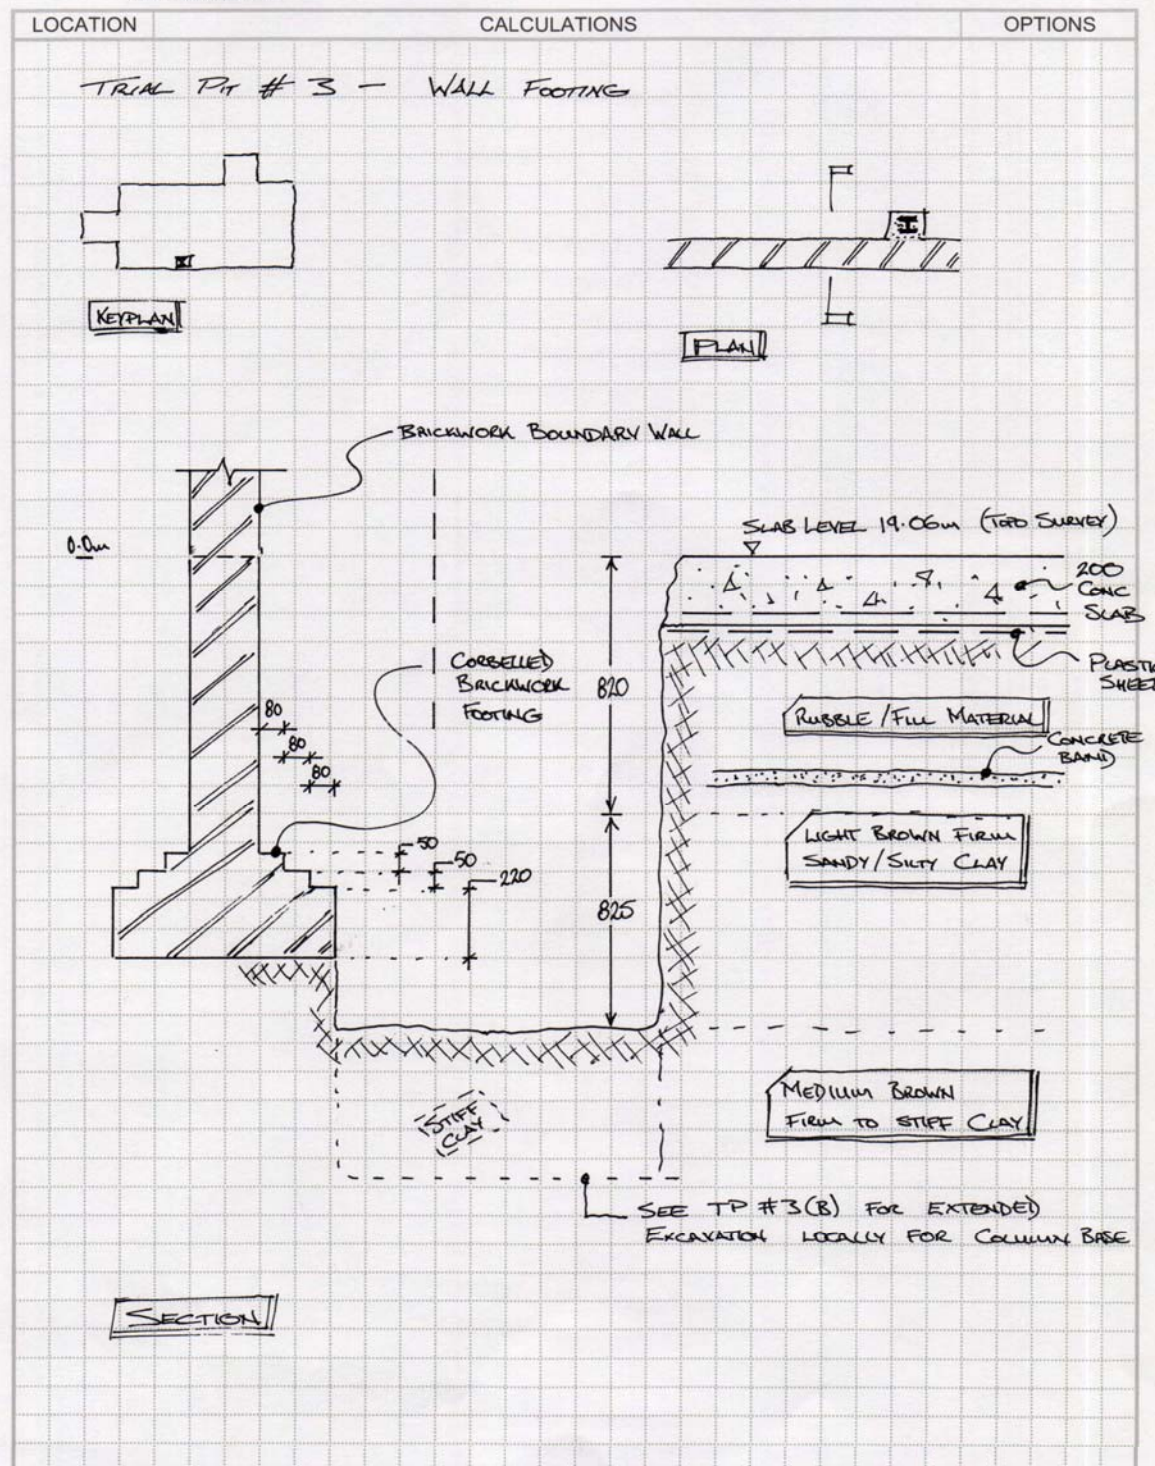 LOCATION CALCULATIONS OPTIONS
TRIAL PIT # 3 - WALL FOOTING
KEYPLAN
PLAN
BRICKWORK BOUNDARY WALL
SLAB LEVEL 19.06m (TOPO SURVEY)
0.0m
200
CONC
SLAB
CORBELLED
BRICKWORK
FOOTING
820
PLASTIC
SHEET
80
80
80
RUBBLE/FILL MATERIAL
CONCRETE
BAND
50
50
220
LIGHT BROWN FIRM
SANDY/SILTY CLAY
825
MEDIUM BROWN
FIRM TO STIFF CLAY
STIFF
CLAY
SEE TP #3(B) FOR EXTENDED
EXCAVATION LOCALLY FOR COLUMN BASE
SECTION